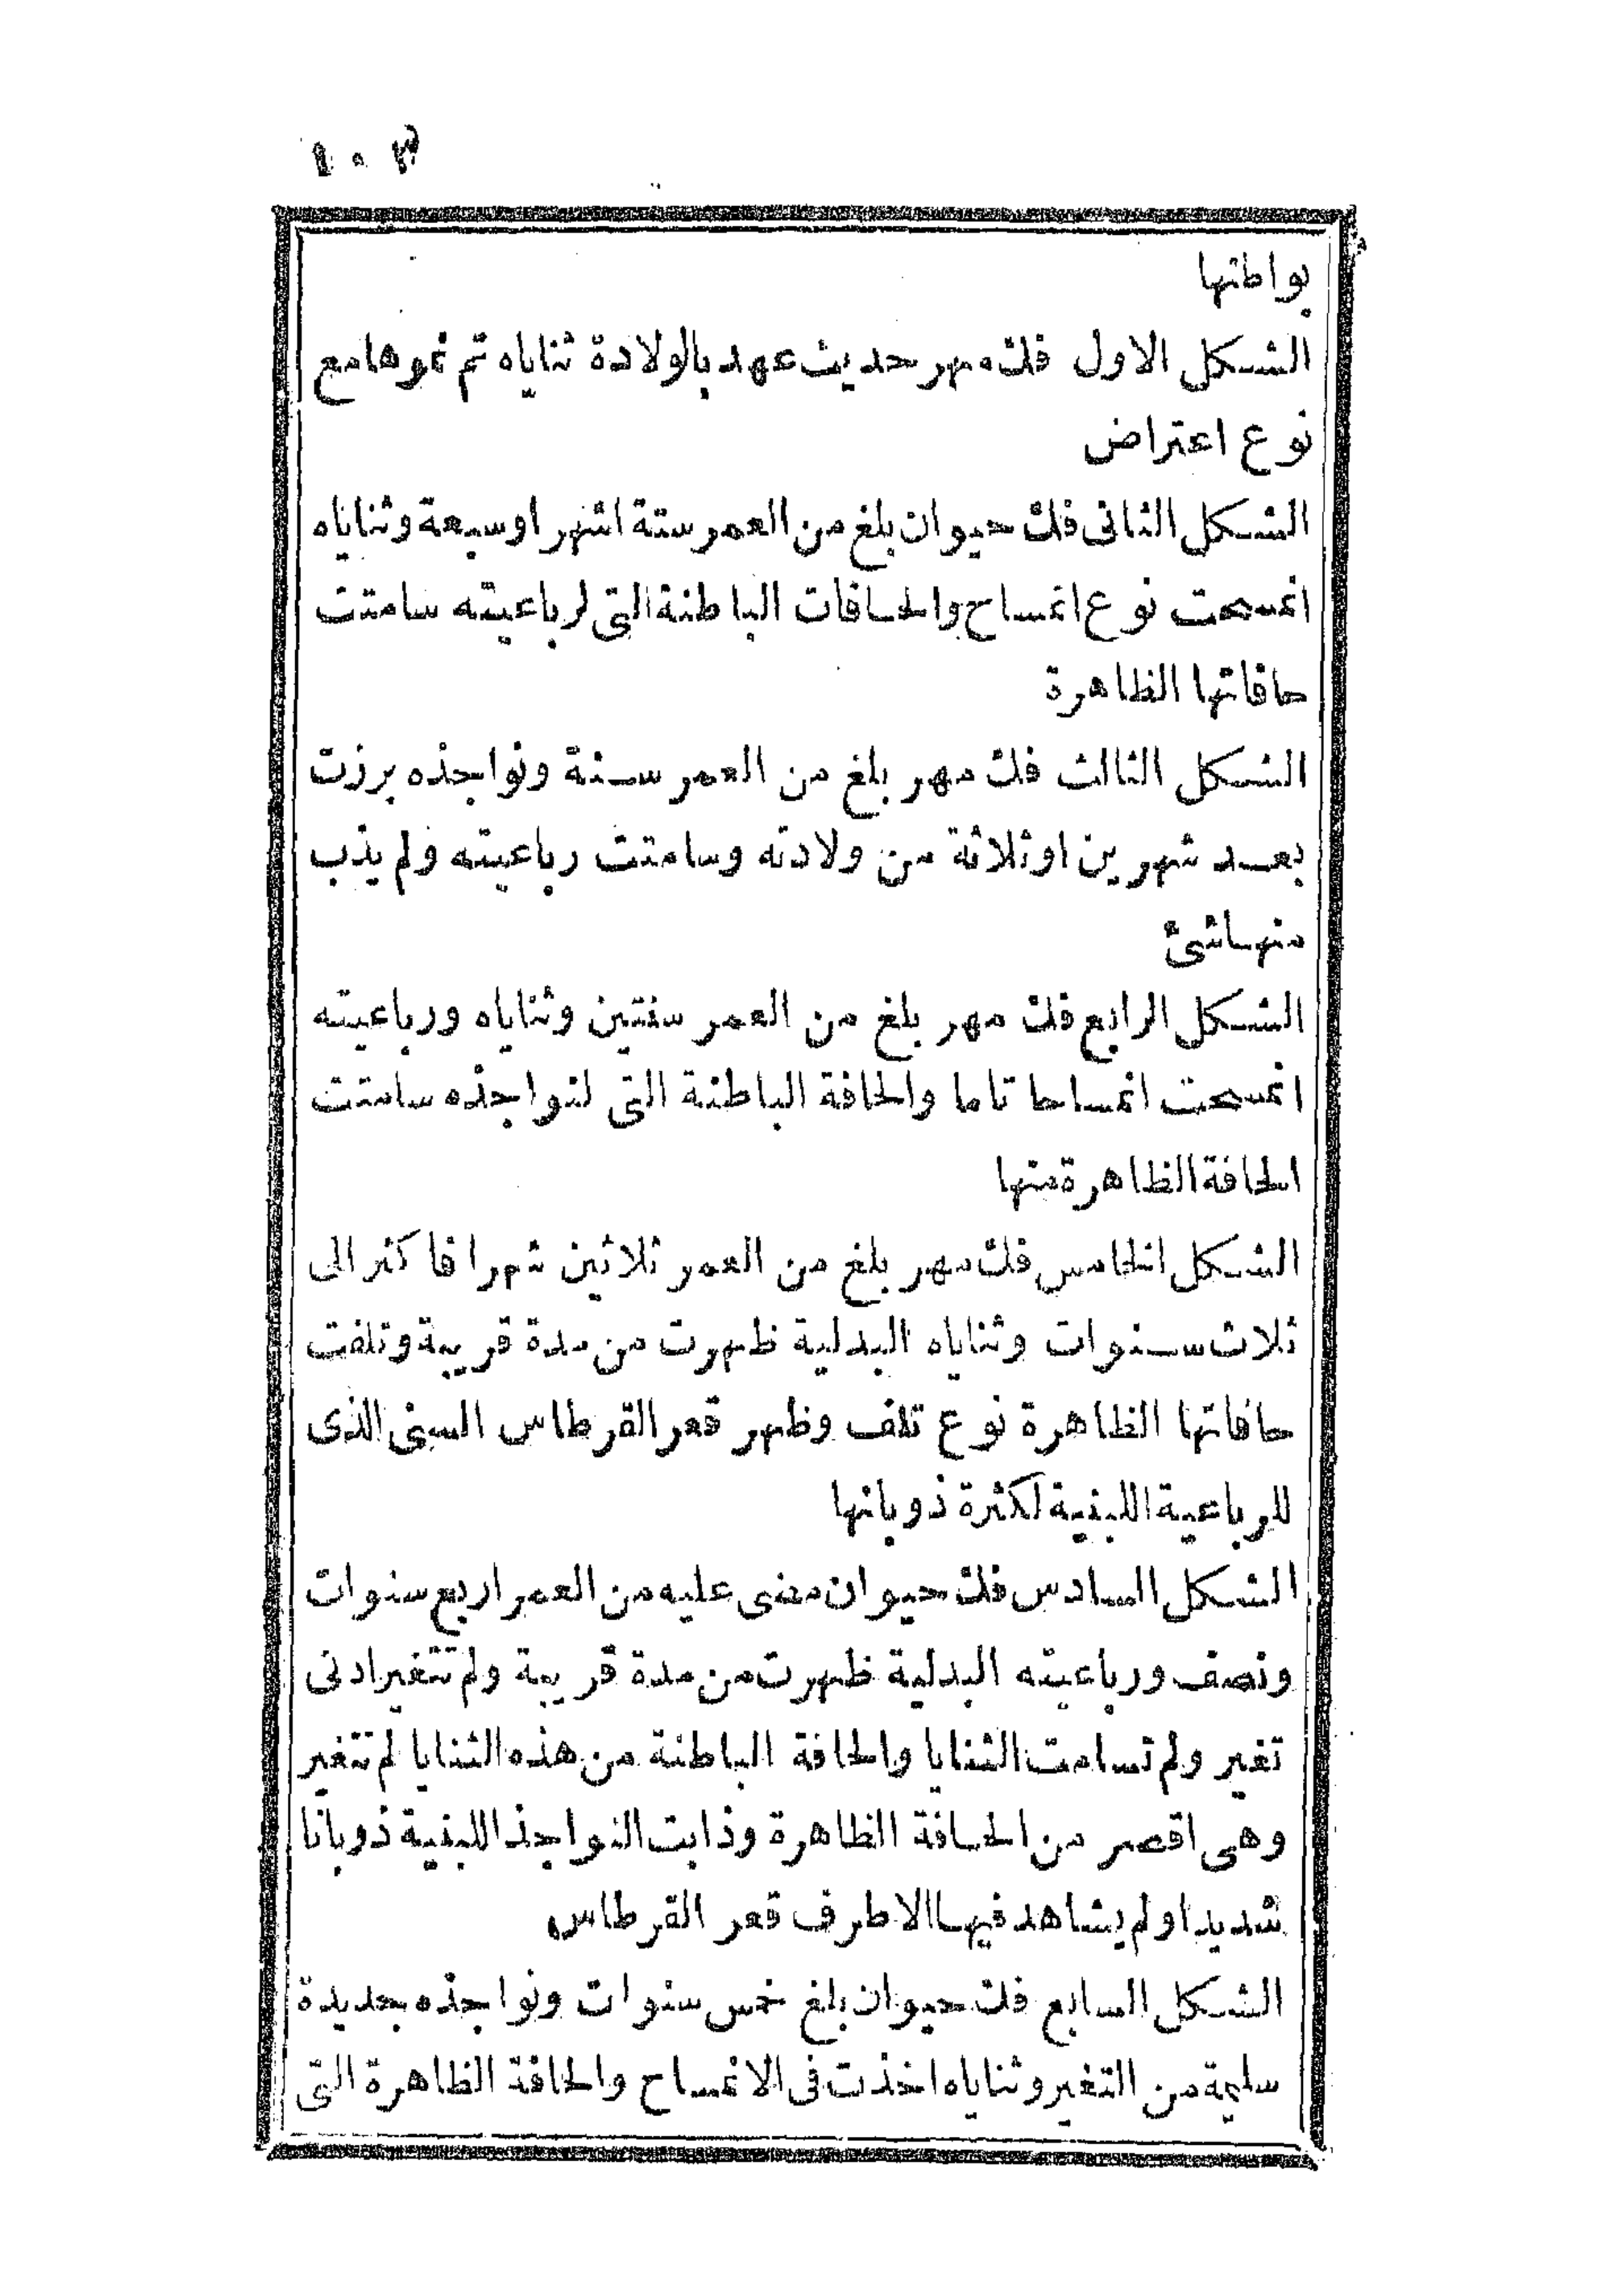 ١٠٣
بواطنها
الشكل الاول فك مهر حديث عهد بالولادة ثناياه تم نموها مع
نوع اعتراض
الشكل الثانى فك حيوان بلغ من العمر ستة اشهر او سبعة وثناياه
انمسحت نوع انمساح والحافات الباطنة التى لرباعيته سامتت
حافاتها الظاهرة
الشكل الثالث فك مهر بلغ من العمر سنة ونواجذه برزت
بعد شهرين او ثلاثة من ولادته وسامتت رباعيته ولم يذب
منها شئ
الشكل الرابع فك مهر بلغ من العمر سنتين وثناياه ورباعيته
انمسحت انمساحا تاما والحافة الباطنة التى لنواجذه سامتت
الحافة الظاهرة منها
الشكل الخامس فك مهر بلغ من العمر ثلاثين شهرا فاكثر الى
ثلاث سنوات وثناياه البدلية ظهرت من مدة قريبة وتلفت
حافاتها الظاهرة نوع تلف وظهر قعر القرطاس السنى الذى
للرباعية اللبنية لكثرة ذوبانها
الشكل السادس فك حيوان مضى عليه من العمر اربع سنوات
ونصف ورباعيته البدلية ظهرت من مدة قريبة ولم تتغير ادنى
تغير ولم تسامت الثنايا والحافة الباطنة من هذه الثنايا لم تتغير
وهى اقصر من الحافة الظاهرة وذابت النواجذ اللبنية ذوبانا
شديدا ولم يشاهد فيها الا طرف قعر القرطاس
الشكل السابع فك حيوان بلغ خمس سنوات ونواجذه جديدة
سليمة من التغير وثناياه اخذت فى الانمساح والحافة الظاهرة التى